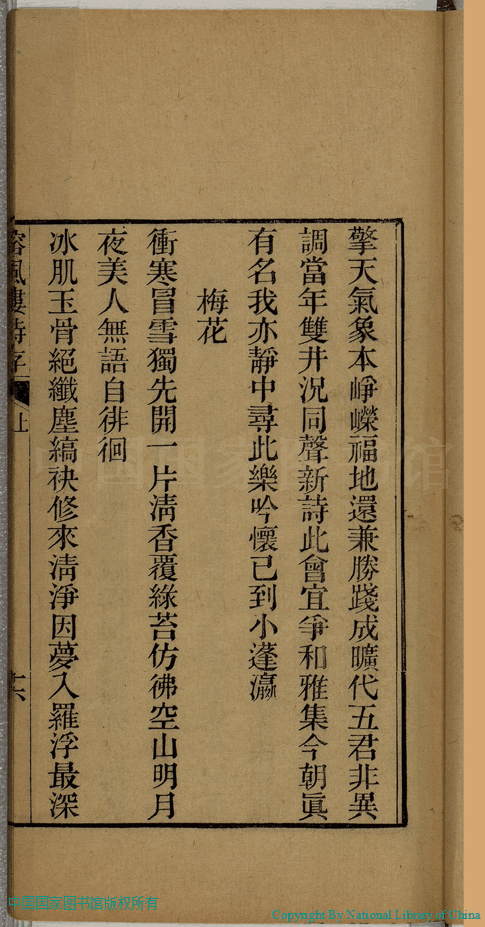 擎天氣象本崢嶸福地還兼勝踐成曠代五君非異
調當年雙井況同聲新詩此會宜爭和雅集今朝眞
有名我亦靜中尋此樂吟懷已到小蓬瀛
梅花
衝寒冒雪獨先開一片淸香覆綠苔仿彿空山明月
夜美人無語自徘徊
冰肌玉骨絕纖塵縞袂修來淸淨因夢入羅浮最深
風樓詩存 上 十六
中国国家图书馆版权所有
Copyright By National Library of China